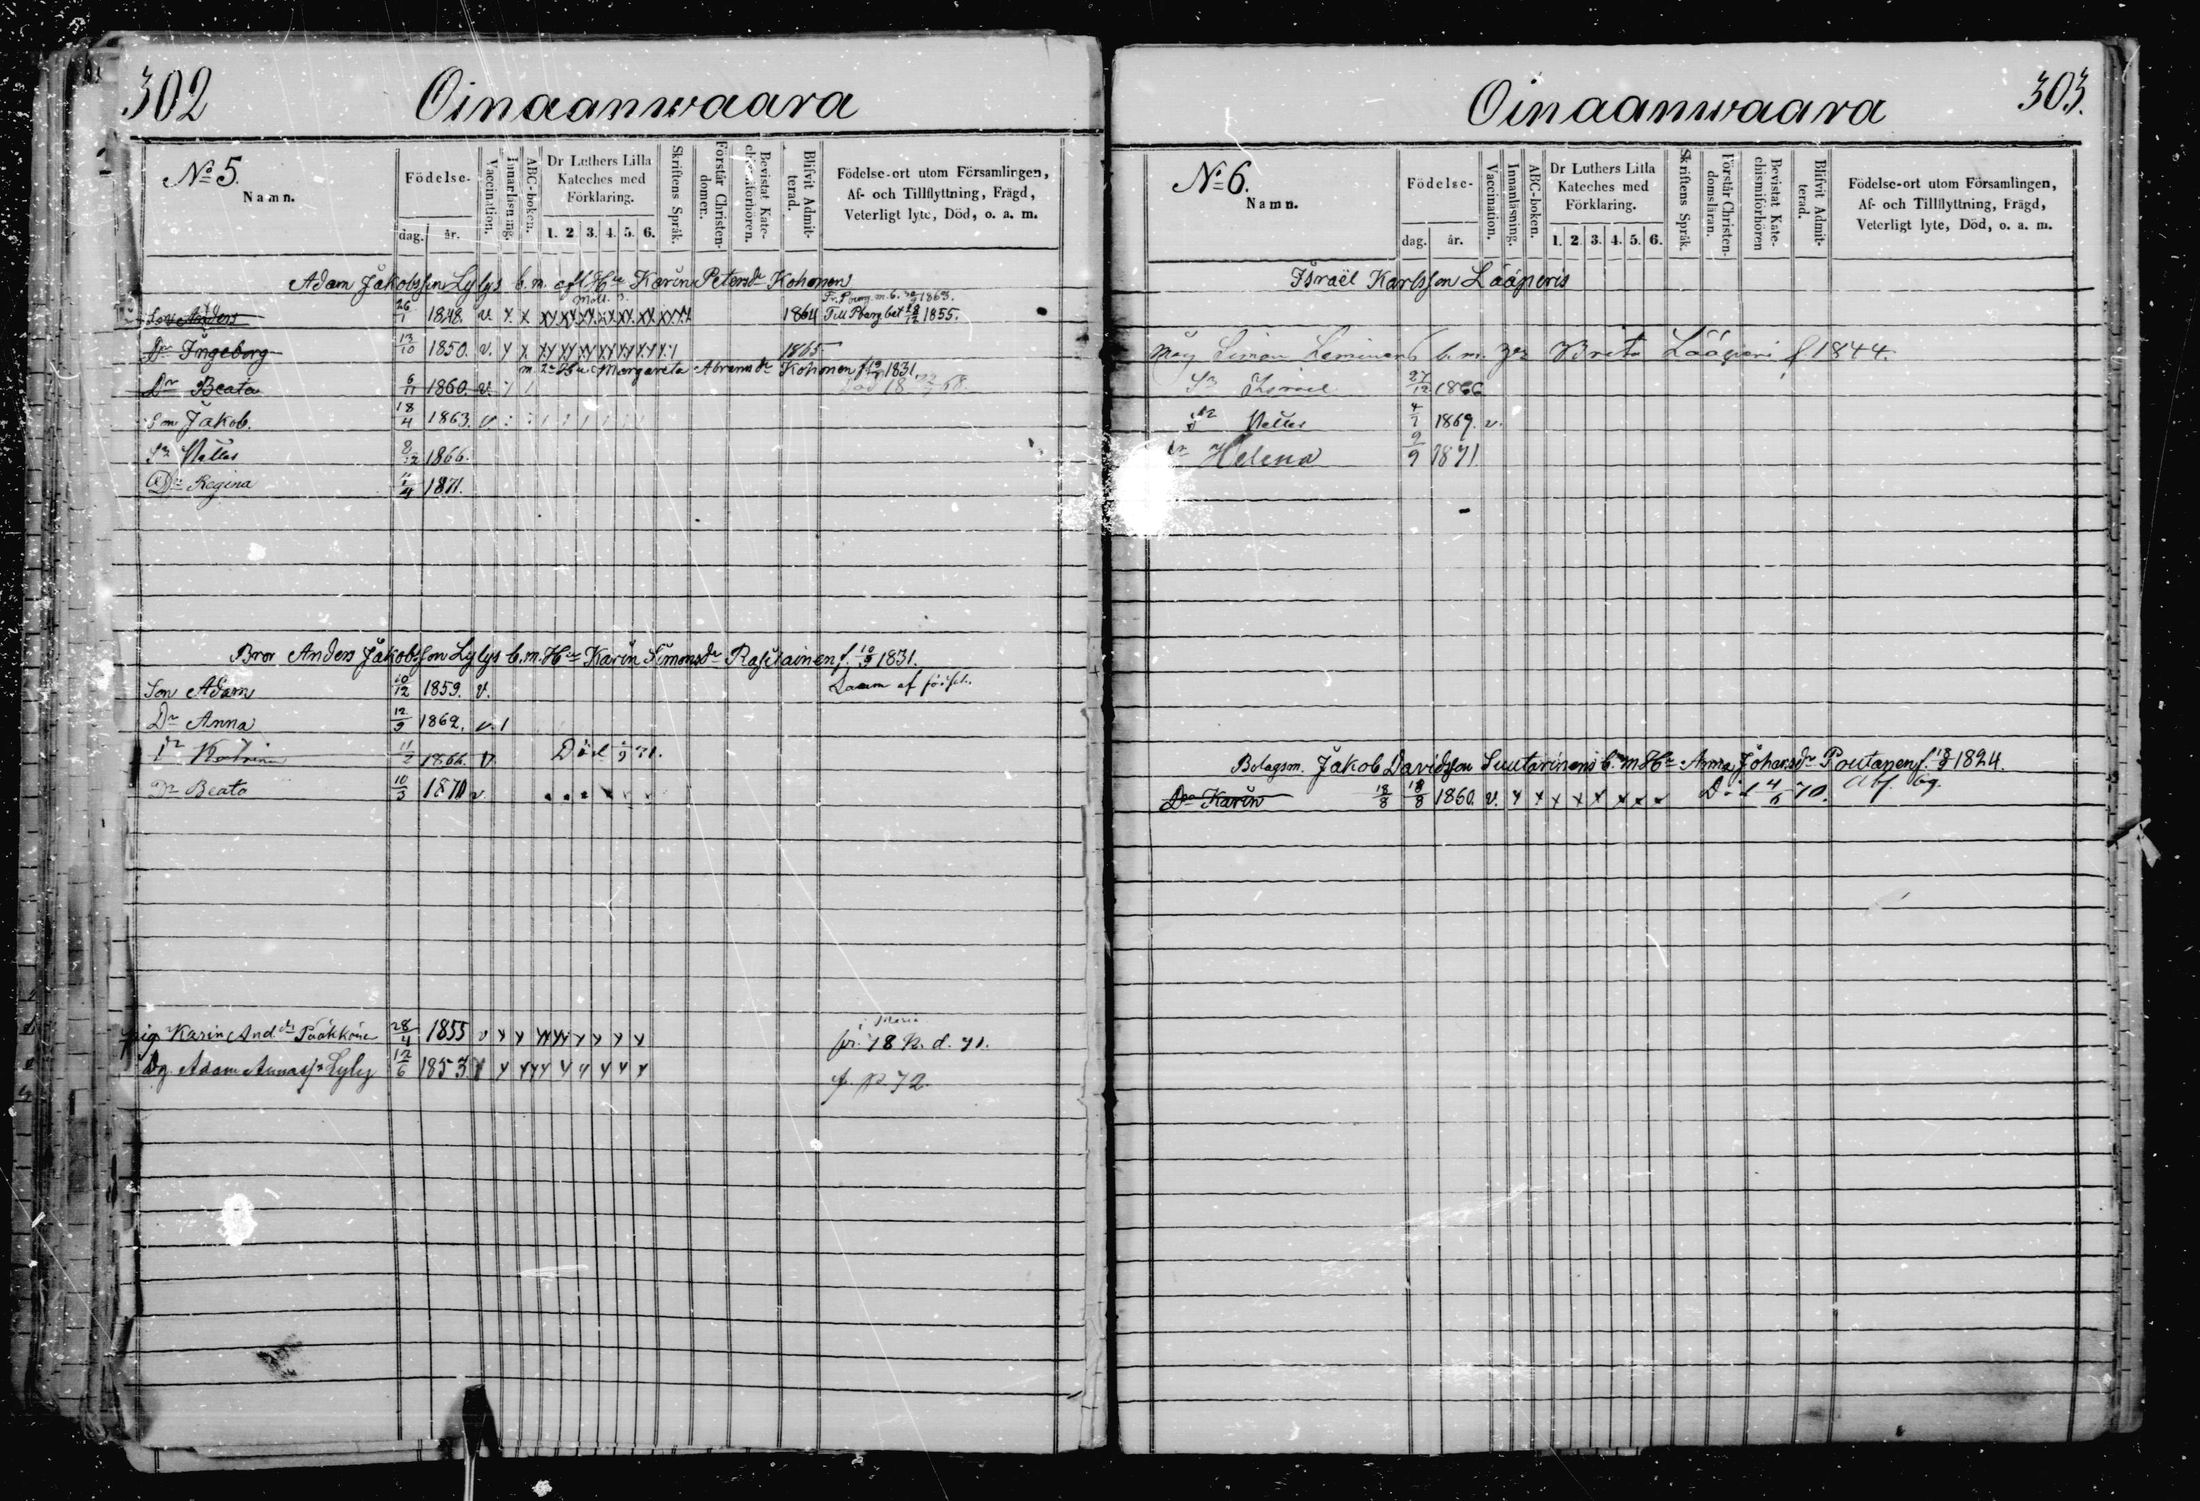 302
Oinaanwaara
No 5.
Namn.
Födelse-
dag.
år.
Vaccination.
Innanläsning.
ABC-boken.
Dr Luthers Lilla
Kateches med
Förklaring.
1. 2. 3. 4. 5. 6.
Skriftens Språk.
Förstår Christen-
domen.
Bevistat Kate-
chismiförhören.
Blifvit Admit-
terad.
Födelse-ort utom Församlingen,
Af- och Tillflyttning, Frägd,
Veterligt lyte, Död, o. a. m.
Adam Jakobsson Lylys b. m. afl. Hu Karin Petersdr Kohonen
Son Anders 26/1 1848. v. x x 1864 Till Pbarg bet 1855.
1863.
Dr Ingeborg 13/10 1850. v. 1865
m. 2. Hu Margareta Abramsdr Kohonen 1831
Dr Beata 6/11 1860. v. Död 18 68.
Son Jakob. 18/4 1863. v
Sn Mattes 8/12 1866.
Dr Regina 1/4 1871.
Bror Anders Jakobsson Lylys b. m. Hu Karin Simonsdr Rasilainen f. 10/9 1831.
Son Adam 10/12 1859. v.
Dr Anna 12/9 1862. v. 1
Dr Katrina 11/2 1866. v Död 71.
Dr Beata 10/3 1870 v.
pig. Karin And.dr Pääkköne 28/4 1855 v x x
fr. 78 N. d. 71.
Dg. Adam Annass. Lyly 12/6 1853
f. p. 72.
303.
Oinaanwaara
No 6.
Namn.
Födelse-
dag.
år.
Vaccination.
Innanläsning.
ABC-boken.
Dr Luthers Lilla
Kateches med
Förklaring.
1. 2. 3. 4. 5. 6.
Skriftens Språk.
Förstår Christen-
domsläran.
Bevistat Kate-
chismiförhören
Blifvit Admit-
terad.
Födelse-ort utom Församlingen,
Af- och Tillflyttning, Frägd,
Veterligt lyte, Död, o. a. m.
Israël Karlsson Lääperis
Måg Simon b. m. Brita Lääperi f 1844.
Sn Israel 27/12 1866
Sn Mattes 4/7 1869. v.
Dr Helena 9/9 1871
Bolagsm. Jakob Davidsson Suutarinens b. m Hu Anna Johansdr Poutanen f. 18/9 1824.
Dr Karin 18/8 18/8 1860. v. x x x x x x x x Död 4/6 70.